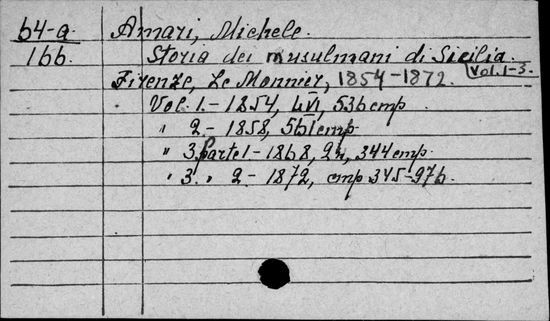 64-a Amari, Michele.
166 Storia dei musulmani di Sicilia.
Vol. 1-3.
Firenze, Le Monnier, 1854-1872.
Vol. 1.- 1854, LVI, 536 стр
" 2 - 1858, 561 стр
" 3. parte 1 - 1868, 2н, 344 стр.
" 3. " 2 - 1872, стр 345-976.